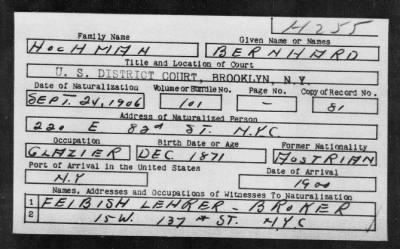 H255
Family Name Given Name or Names
HOCHMAN BERNHARD
Title and Location of Court
U. S. DISTRICT COURT, BROOKLYN, N.Y.
Date of Naturalization Volume or Bundle No. Page No. Copy of Record No.
SEPT. 24, 1906 101 - 81
Address of Naturalized Person
220 E. 82d ST. N.Y.C
Occupation Birth Date or Age Former Nationality
GLAZIER DEC. 1871 AUSTRIAN
Port of Arrival in the United States Date of Arrival
N.Y 1900
Names, Addresses and Occupations of Witnesses To Naturalization
1 FEIBISH LEHRER - BROKER
2 15 W. 137th ST. N.Y.C